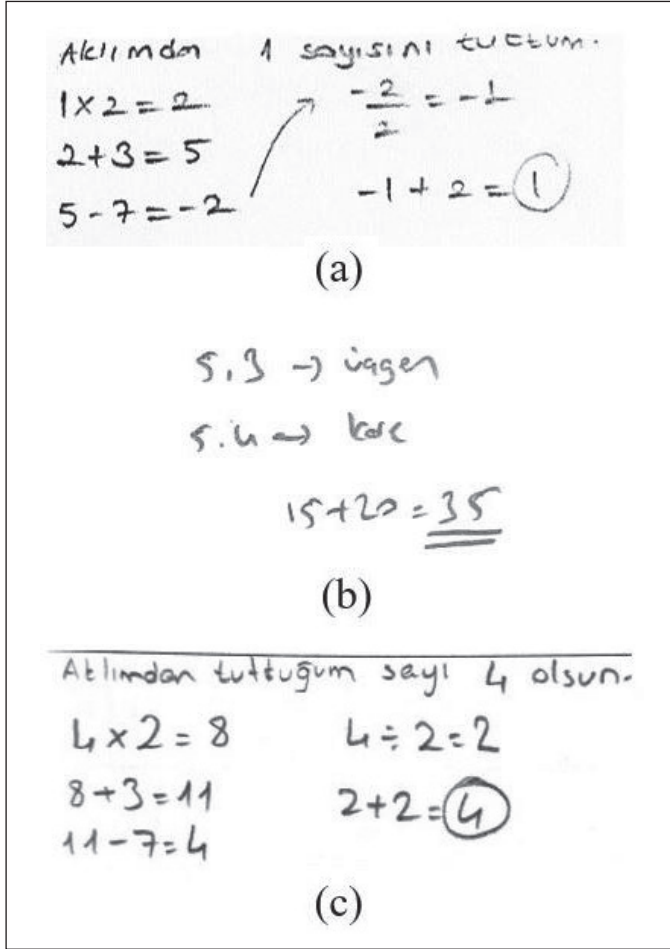 Aklımdan 1 sayısını tuttum.
1x2=2
2+3=5
5-7=-2
-2/2 = -1
-1+2=1
(a)
5.3 → üçgen
5.4 → kare
15+20=35
(b)
Aklımdan tuttuğum sayı 4 olsun.
4x2=8
8+3=11
11-7=4
4÷2=2
2+2=4
(c)